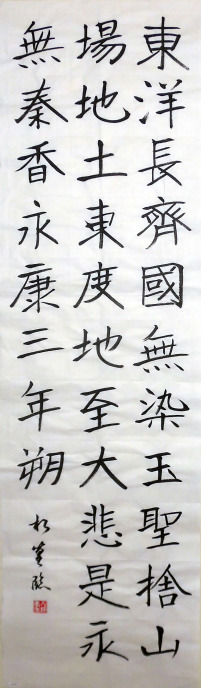 東洋長齊國無染玉聖捨山
場地土東度地至大悲是永
無秦香永康三年朔